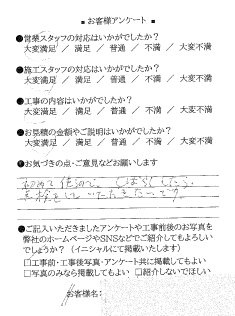 ■ お客様アンケート ■
●営業スタッフの対応はいかがでしたか?
大変満足 / 満足 / 普通 / 不満 / 大変不満
●施工スタッフの対応はいかがでしたか?
大変満足 / 満足 / 普通 / 不満 / 大変不満
●工事の内容はいかがでしたか?
大変満足 / 満足 / 普通 / 不満 / 大変不満
●お見積の金額やご説明はいかがでしたか?
大変満足 / 満足 / 普通 / 不満 / 大変不満
●お気づきの点・ご意見などお願いします
初めて使うので、しばらくしたら、
点検をしていただきたいです。
●ご記入いただきましたアンケートや工事前後のお写真を
弊社のホームページやSNSなどでご紹介してもよろしい
でしょうか? (イニシャルにて掲載いたします)
□工事前・工事後写真・アンケート共に掲載してもよい
□写真のみなら掲載してもよい □紹介しないでほしい
お客様名: